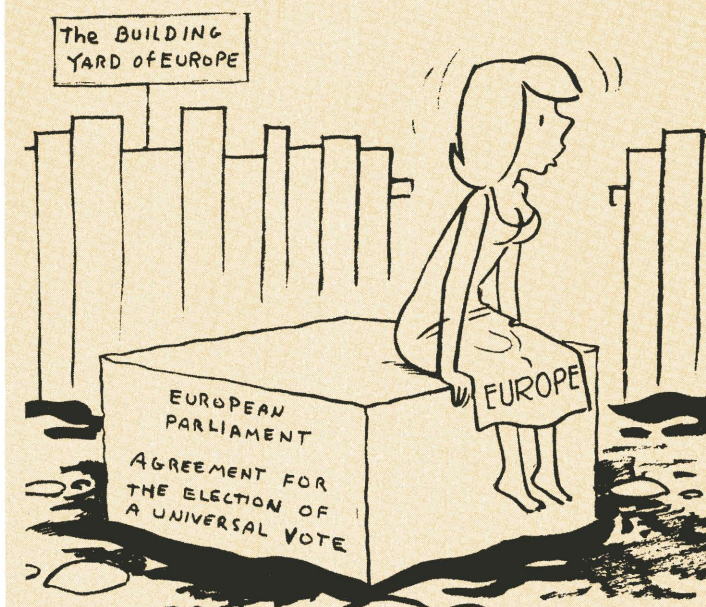 The BUILDING
YARD of EUROPE
EUROPE
EUROPEAN
PARLIAMENT
AGREEMENT FOR
THE ELECTION OF
A UNIVERSAL VOTE